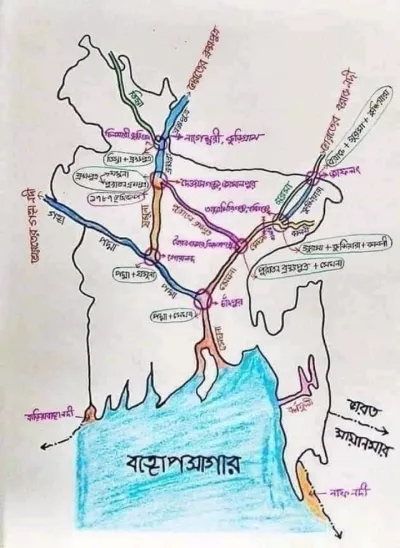 তিস্তা
ভারতের ব্রহ্মপুত্র
ব্রহ্মপুত্র
নাগেশ্বরী, কুড়িগ্রাম
চিলমারী, কুড়িগ্রাম
তিস্তা + ব্রহ্মপুত্র
ব্রহ্মপুত্র
যমুনা
পুরাতন ব্রহ্মপুত্র
দেওয়ানগঞ্জ, জামালপুর
পুরাতন ব্রহ্মপুত্র
যমুনা
ভারতের গঙ্গা নদী
গঙ্গা
পদ্মা
গোয়ালন্দ
পদ্মা + যমুনা
পদ্মা
পদ্মা + মেঘনা
চাঁদপুর
মেঘনা
মেঘনা
পুরাতন ব্রহ্মপুত্র + মেঘনা
সুরমা
কুশিয়ারা
ভারতের বরাক নদী
বরাক → সুরমা + কুশিয়ারা
হাড়িয়াভাঙ্গা নদী
কর্ণফুলী
ভারত
মায়ানমার
নাফ নদী
বঙ্গোপসাগর